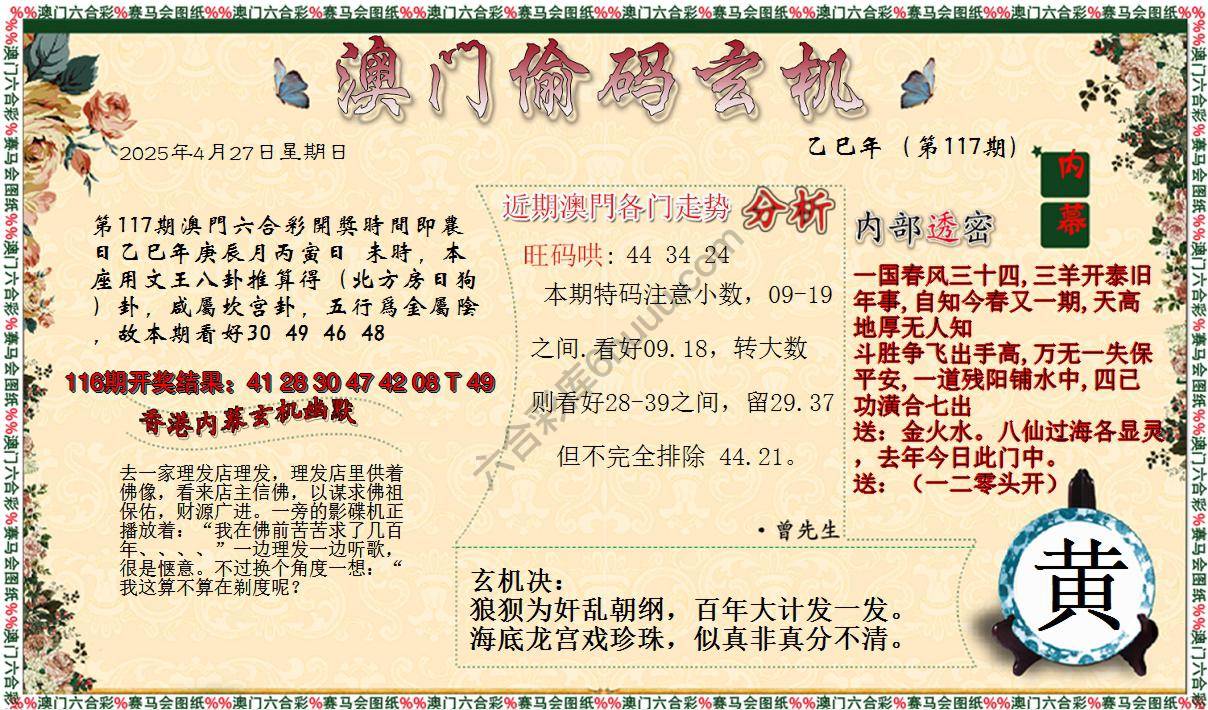 %%澳门六合彩%赛马会图纸%%澳门六合彩%赛马会图纸%%澳门六合彩%赛马会图纸%%澳门六合彩%赛马会图纸%%澳门六合彩%赛马会图纸%%澳门六合彩%赛马会图纸%%
澳门偷码玄机
2025年4月27日星期日
乙巳年（第117期）
内
幕
第117期澳門六合彩開獎時間即農
日乙巳年庚辰月丙寅日 未時，本
座用文王八卦推算得（北方房日狗
）卦，咸屬坎宫卦，五行爲金屬陰
，故本期看好30 49 46 48
116期开奖结果：41 28 30 47 42 08 T 49
香港内幕玄机幽默
去一家理发店理发，理发店里供着
佛像，看来店主信佛，以谋求佛祖
保佑，财源广进。一旁的影碟机正
播放着：“我在佛前苦苦求了几百
年、、、、”一边理发一边听歌，
很是惬意。不过换个角度一想：“
我这算不算在剃度呢？
近期澳門各门走势 分析
旺码哄：44 34 24
本期特码注意小数，09-19
之间.看好09.18，转大数
则看好28-39之间，留29.37
但不完全排除 44.21。
·曾先生
内部透密
一国春风三十四,三羊开泰旧
年事,自知今春又一期,天高
地厚无人知
斗胜争飞出手高,万无一失保
平安,一道残阳铺水中,四已
功潢合七出
送：金火水。八仙过海各显灵
，去年今日此门中。
送：（一二零头开）
玄机决：
狼狈为奸乱朝纲，百年大计发一发。
海底龙宫戏珍珠，似真非真分不清。
黄
%%澳门六合彩%赛马会图纸%%澳门六合彩%赛马会图纸%%澳门六合彩%赛马会图纸%%澳门六合彩%赛马会图纸%%澳门六合彩%赛马会图纸%%澳门六合彩%赛马会图纸%%